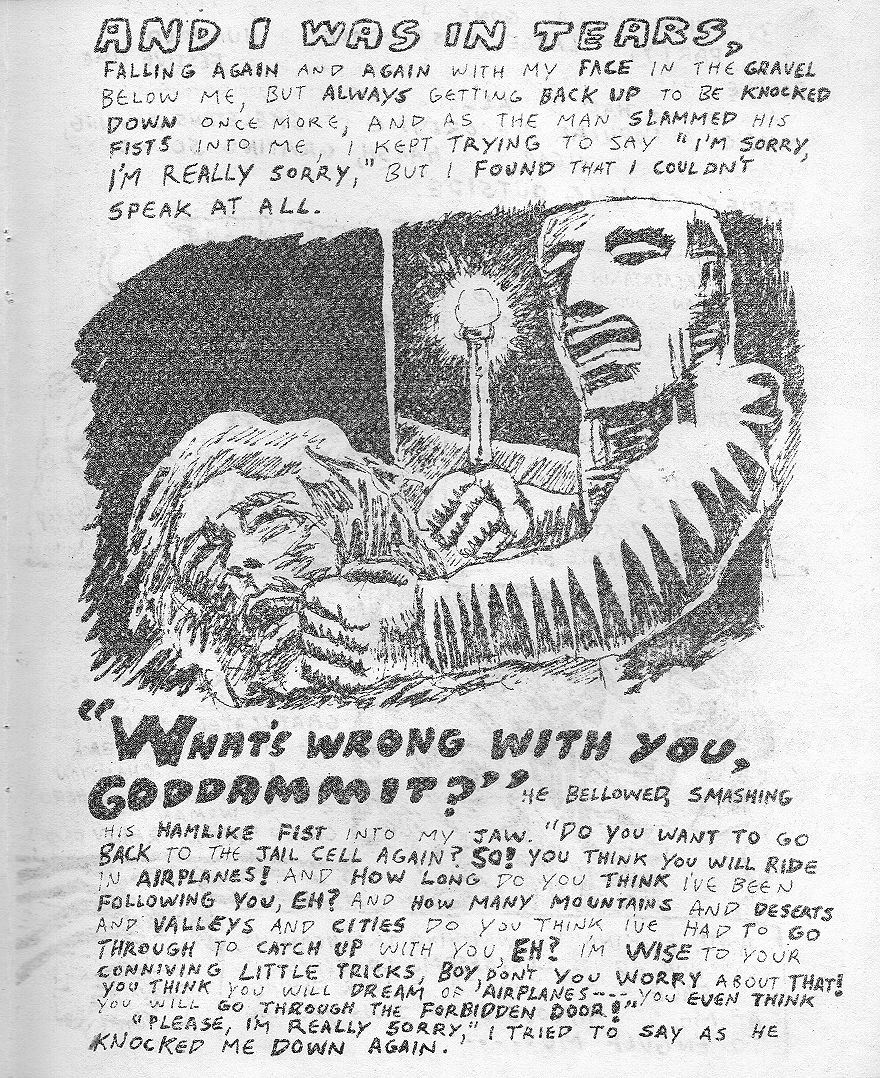 AND I WAS IN TEARS,
FALLING AGAIN AND AGAIN WITH MY FACE IN THE GRAVEL
BELOW ME, BUT ALWAYS GETTING BACK UP TO BE KNOCKED
DOWN ONCE MORE, AND AS THE MAN SLAMMED HIS
FISTS INTO ME, I KEPT TRYING TO SAY "I'M SORRY,
I'M REALLY SORRY," BUT I FOUND THAT I COULDN'T
SPEAK AT ALL.
"WHAT'S WRONG WITH YOU,
GODDAMMIT?" HE BELLOWED, SMASHING
HIS HAMLIKE FIST INTO MY JAW. "DO YOU WANT TO GO
BACK TO THE JAIL CELL AGAIN? SO! YOU THINK YOU WILL RIDE
IN AIRPLANES! AND HOW LONG DO YOU THINK I'VE BEEN
FOLLOWING YOU, EH? AND HOW MANY MOUNTAINS AND DESERTS
AND VALLEYS AND CITIES DO YOU THINK I'VE HAD TO GO
THROUGH TO CATCH UP WITH YOU, EH? I'M WISE TO YOUR
CONNIVING LITTLE TRICKS, BOY, DON'T YOU WORRY ABOUT THAT!
YOU THINK YOU WILL DREAM OF AIRPLANES---- YOU EVEN THINK
YOU WILL GO THROUGH THE FORBIDDEN DOOR!"
"PLEASE, I'M REALLY SORRY," I TRIED TO SAY AS HE
KNOCKED ME DOWN AGAIN.